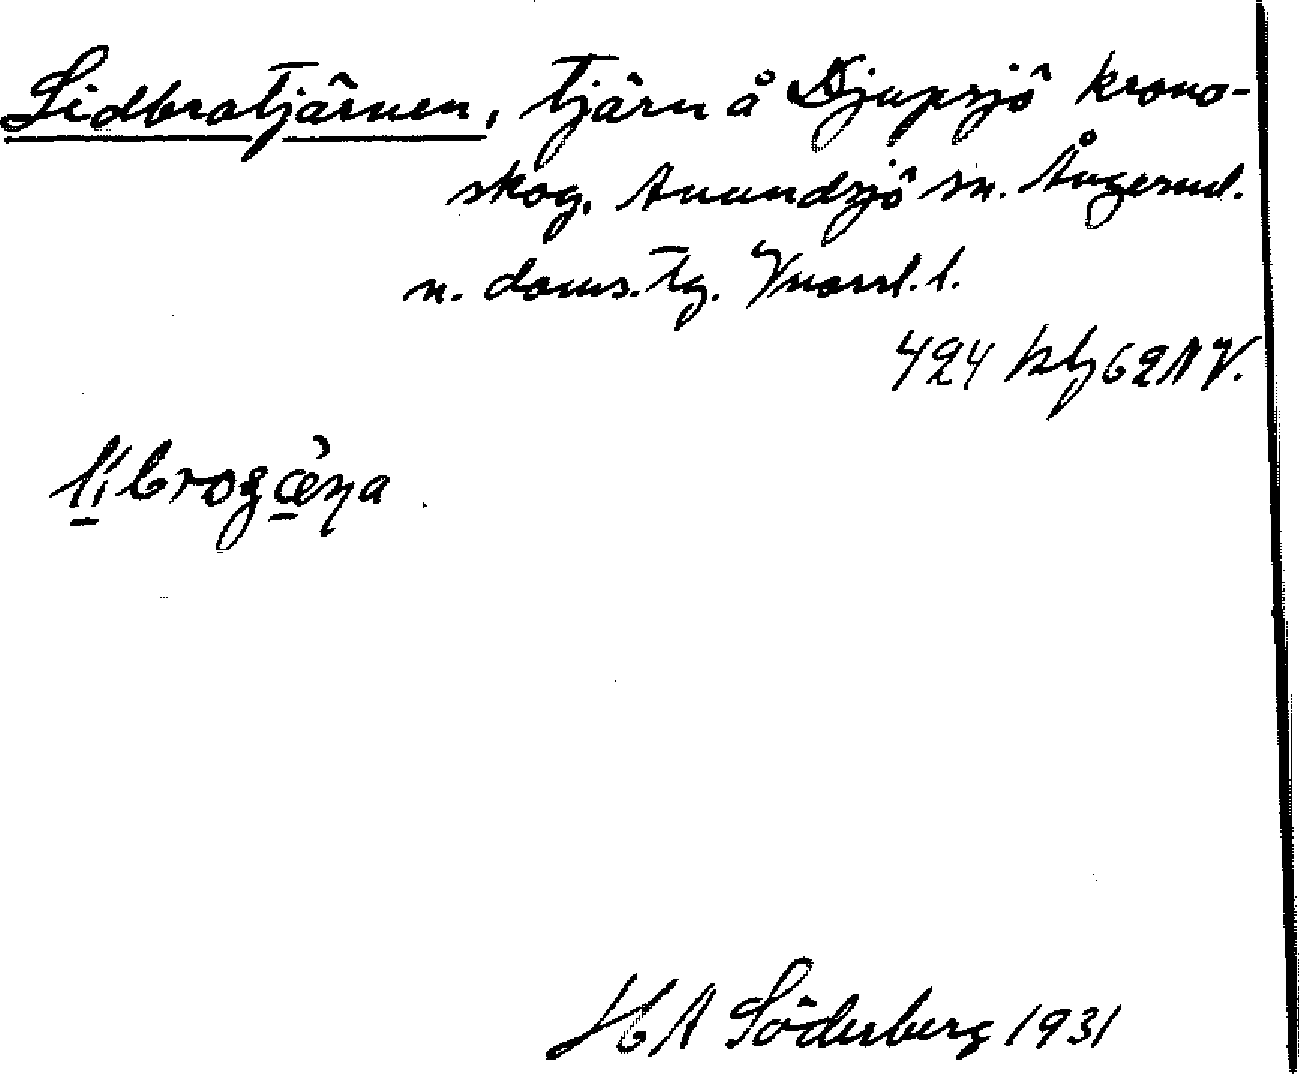 Lidbratjärnen, tjärn å Djupsjö krono-
skog, Anundsjö sn. Ångerml.
n. doms.tg. Vnorrl. l.
424 kbl 62 NV.
l̀ibrogæ̀ŋa
H A Söderberg 1931